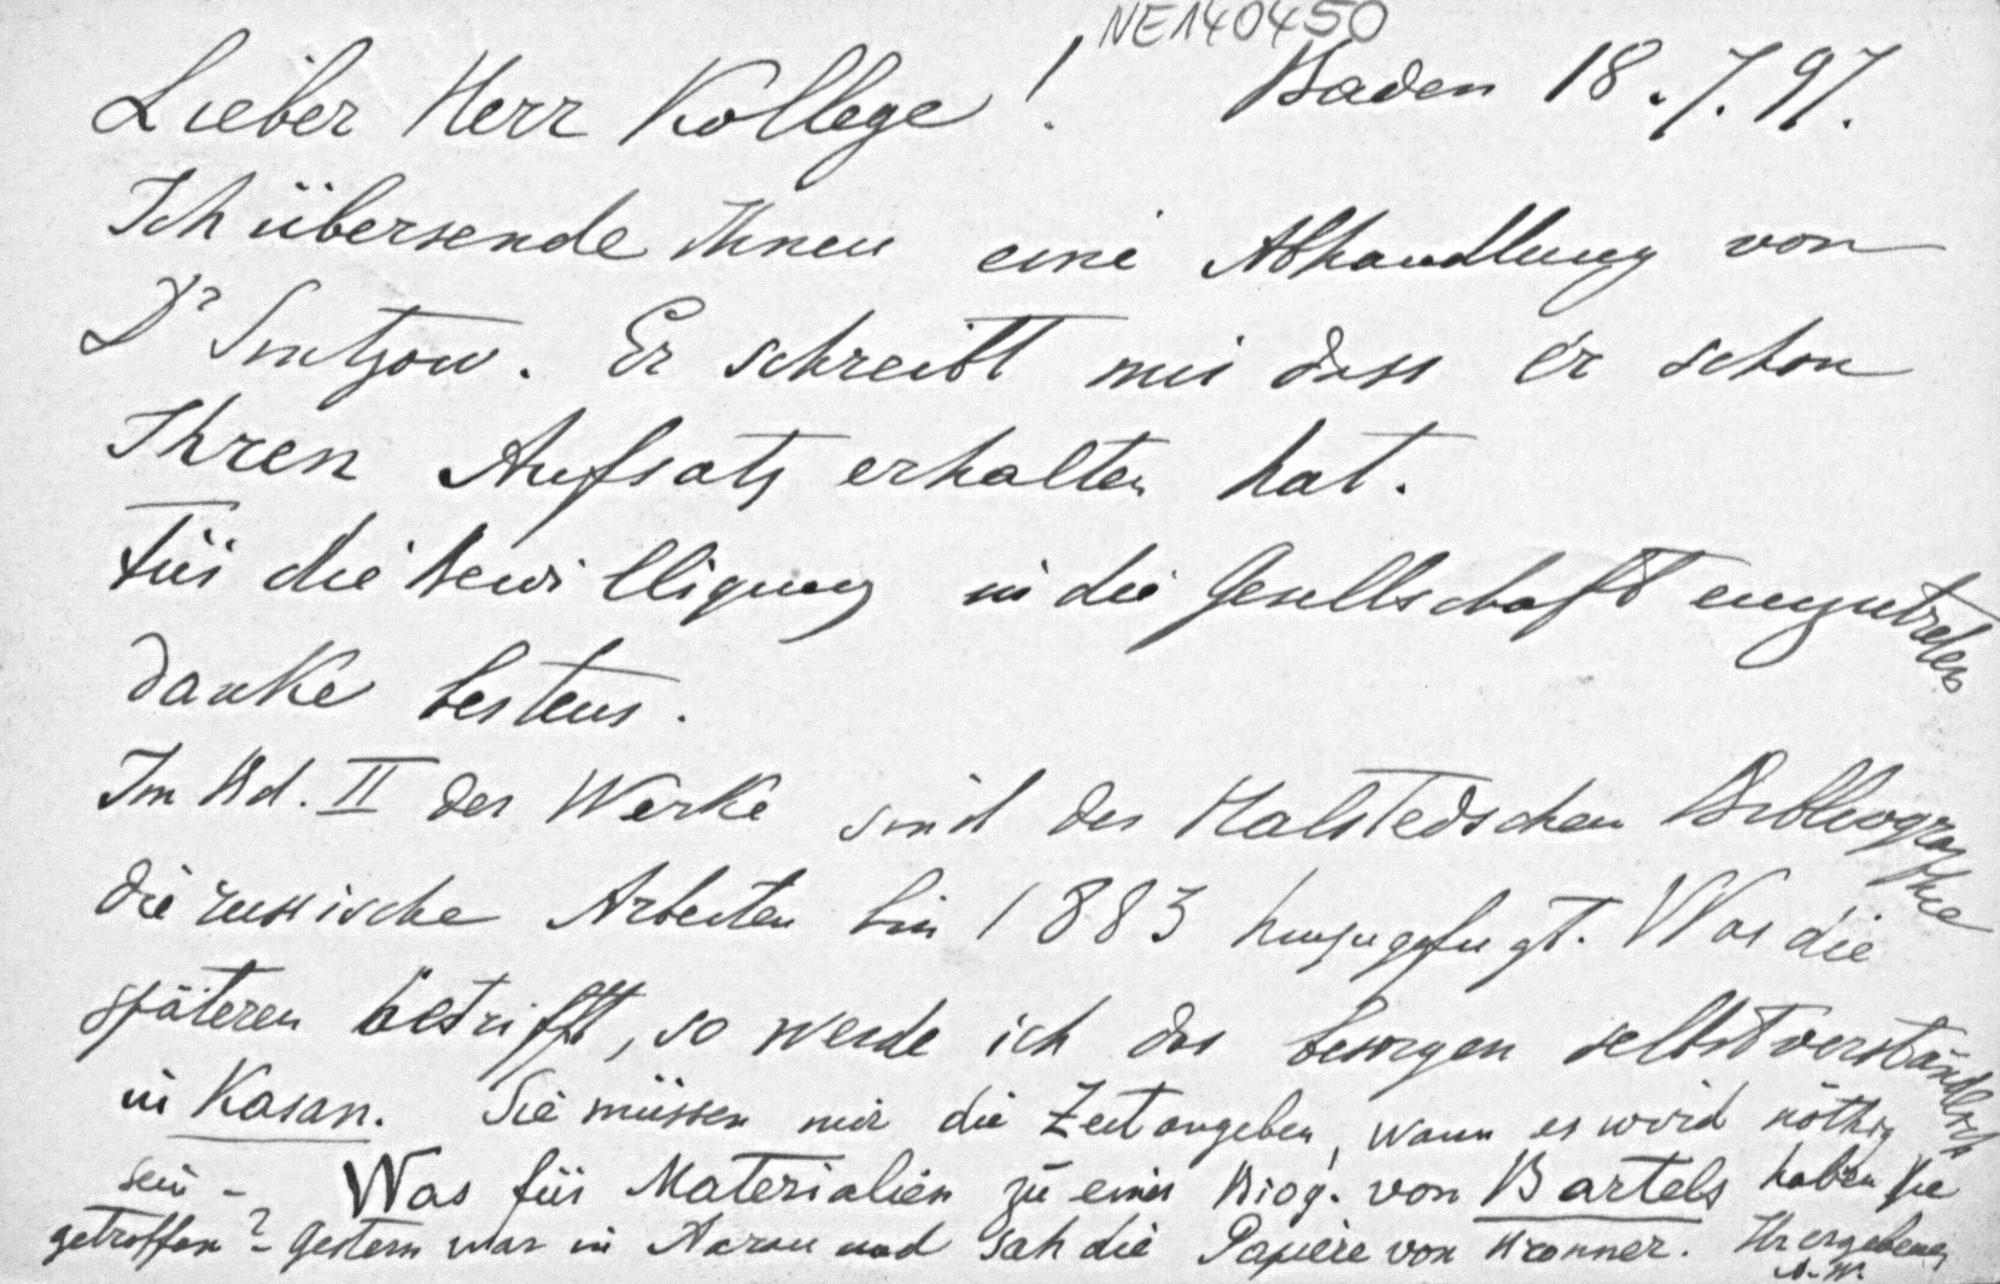 NE140450
Lieber Herr Kollege! Baden 18.7.97.
Ich übersende Ihnen eine Abhandlung von
Dr Sintzow. Er schreibt mir dass er schon
Ihren Aufsatz erhalten hat.
Für die Bewilligung in die Gesellschaft einzutreten
danke bestens.
Im Bd. II der Werke sind der Halstedschen Bibliographie
die russische Arbeiten bis 1883 hinzugefugt. Was die
späteren betrifft, so werde ich das besorgen selbstverständlich
in Kasan. Sie müssen mir die Zeit angeben, wann es wird nöthig
sein - Was für Materialien zu einer Biog. von Bartels haben Sie
getroffen? - Gestern war in Aarau und sah die Papiere von Bronner. Ihr ergebener
A. W.